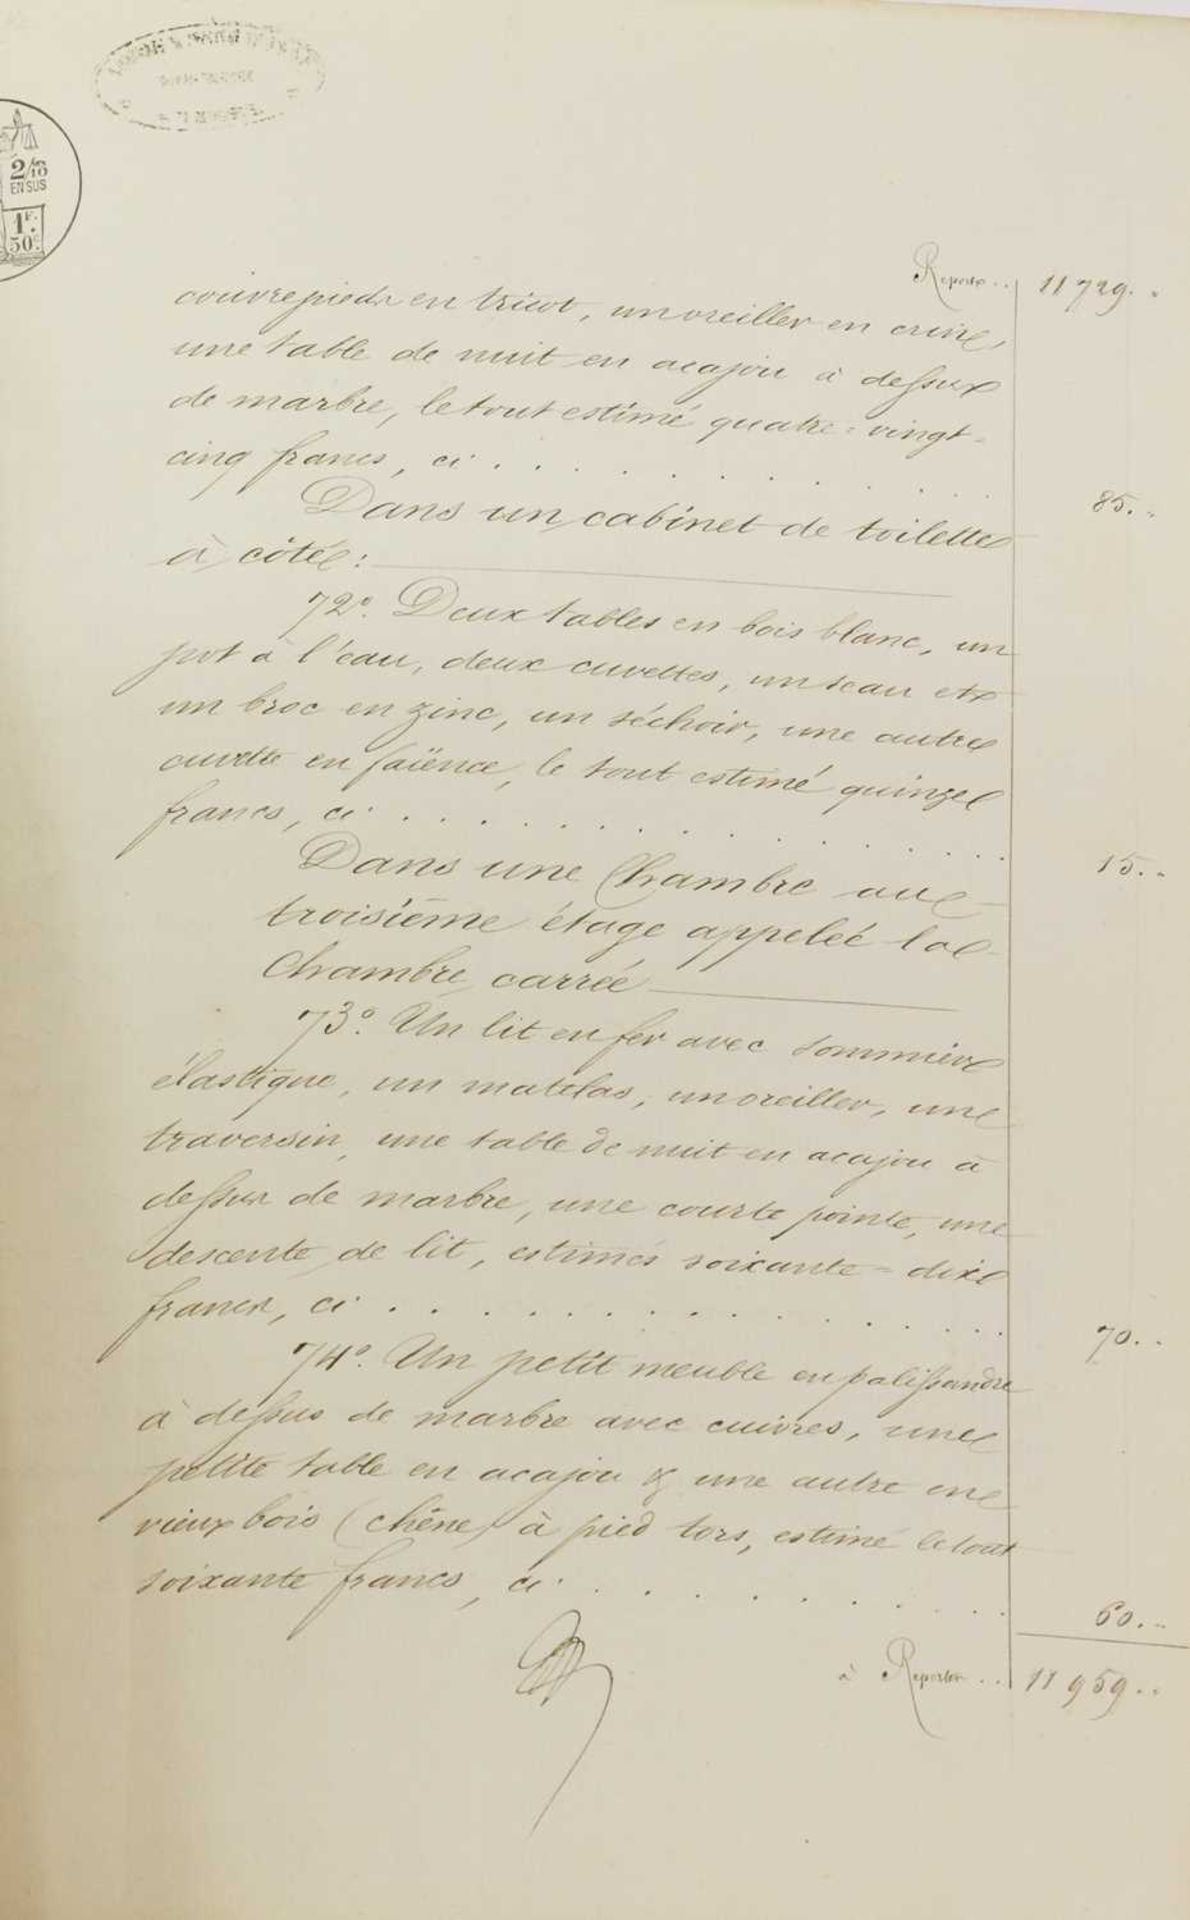 2/10
EN SUS
1F.
50c.
Report .. 11 729. "
couvrepieds en tricot, un oreiller en crin,
une table de nuit en acajou à dessus
de marbre, le tout estimé quatre-vingt-
cinq francs, ci . . . . . . . . . 85. "
Dans un cabinet de toilette
à côté :
72°. Deux tables en bois blanc, un
pot à l'eau, deux cuvettes, un seau et
un broc en zinc, un séchoir, une autre
cuvette en faïence, le tout estimé quinze
francs, ci . . . . . . . . . . 15. "
Dans une Chambre au
troisième étage appelée la
Chambre carrée
73°. Un lit en fer avec sommier
élastique, un matelas, un oreiller, un
traversin, une table de nuit en acajou à
dessus de marbre, une courte pointe, une
descente de lit, estimés soixante-dix
francs, ci . . . . . . . . . . 70. "
74°. Un petit meuble en palissandre
à dessus de marbre avec cuivres, une
petite table en acajou & une autre en
vieux bois (chêne) à pied tors, estimé le tout
soixante francs, ci . . . . . . . . 60. "
à Reporter . . 11 959. "